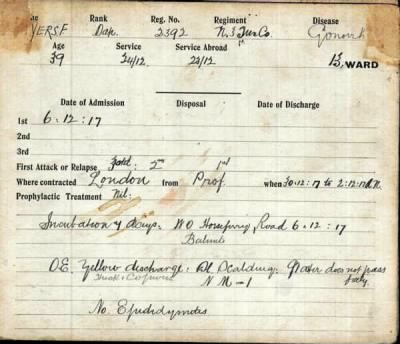 Rank Reg. No. Regiment Disease
YERS F 2392 N.Z Tun Co. Gonorrh
Age Service Service Abroad
39 24/12 22/12 B. WARD
Date of Admission Disposal Date of Discharge
1st 6.12.17
2nd
3rd
First Attack or Relapse 1st
Where contracted London from Prof. when 30.12.17 to 2.12.17
Prophylactic Treatment Nil.
Incubation 4 days. Road 6.12.17
O.E. Yellow discharge: Scalding: Water does not pass
Thick & Copious N M-1 freely
No. Epididymitis